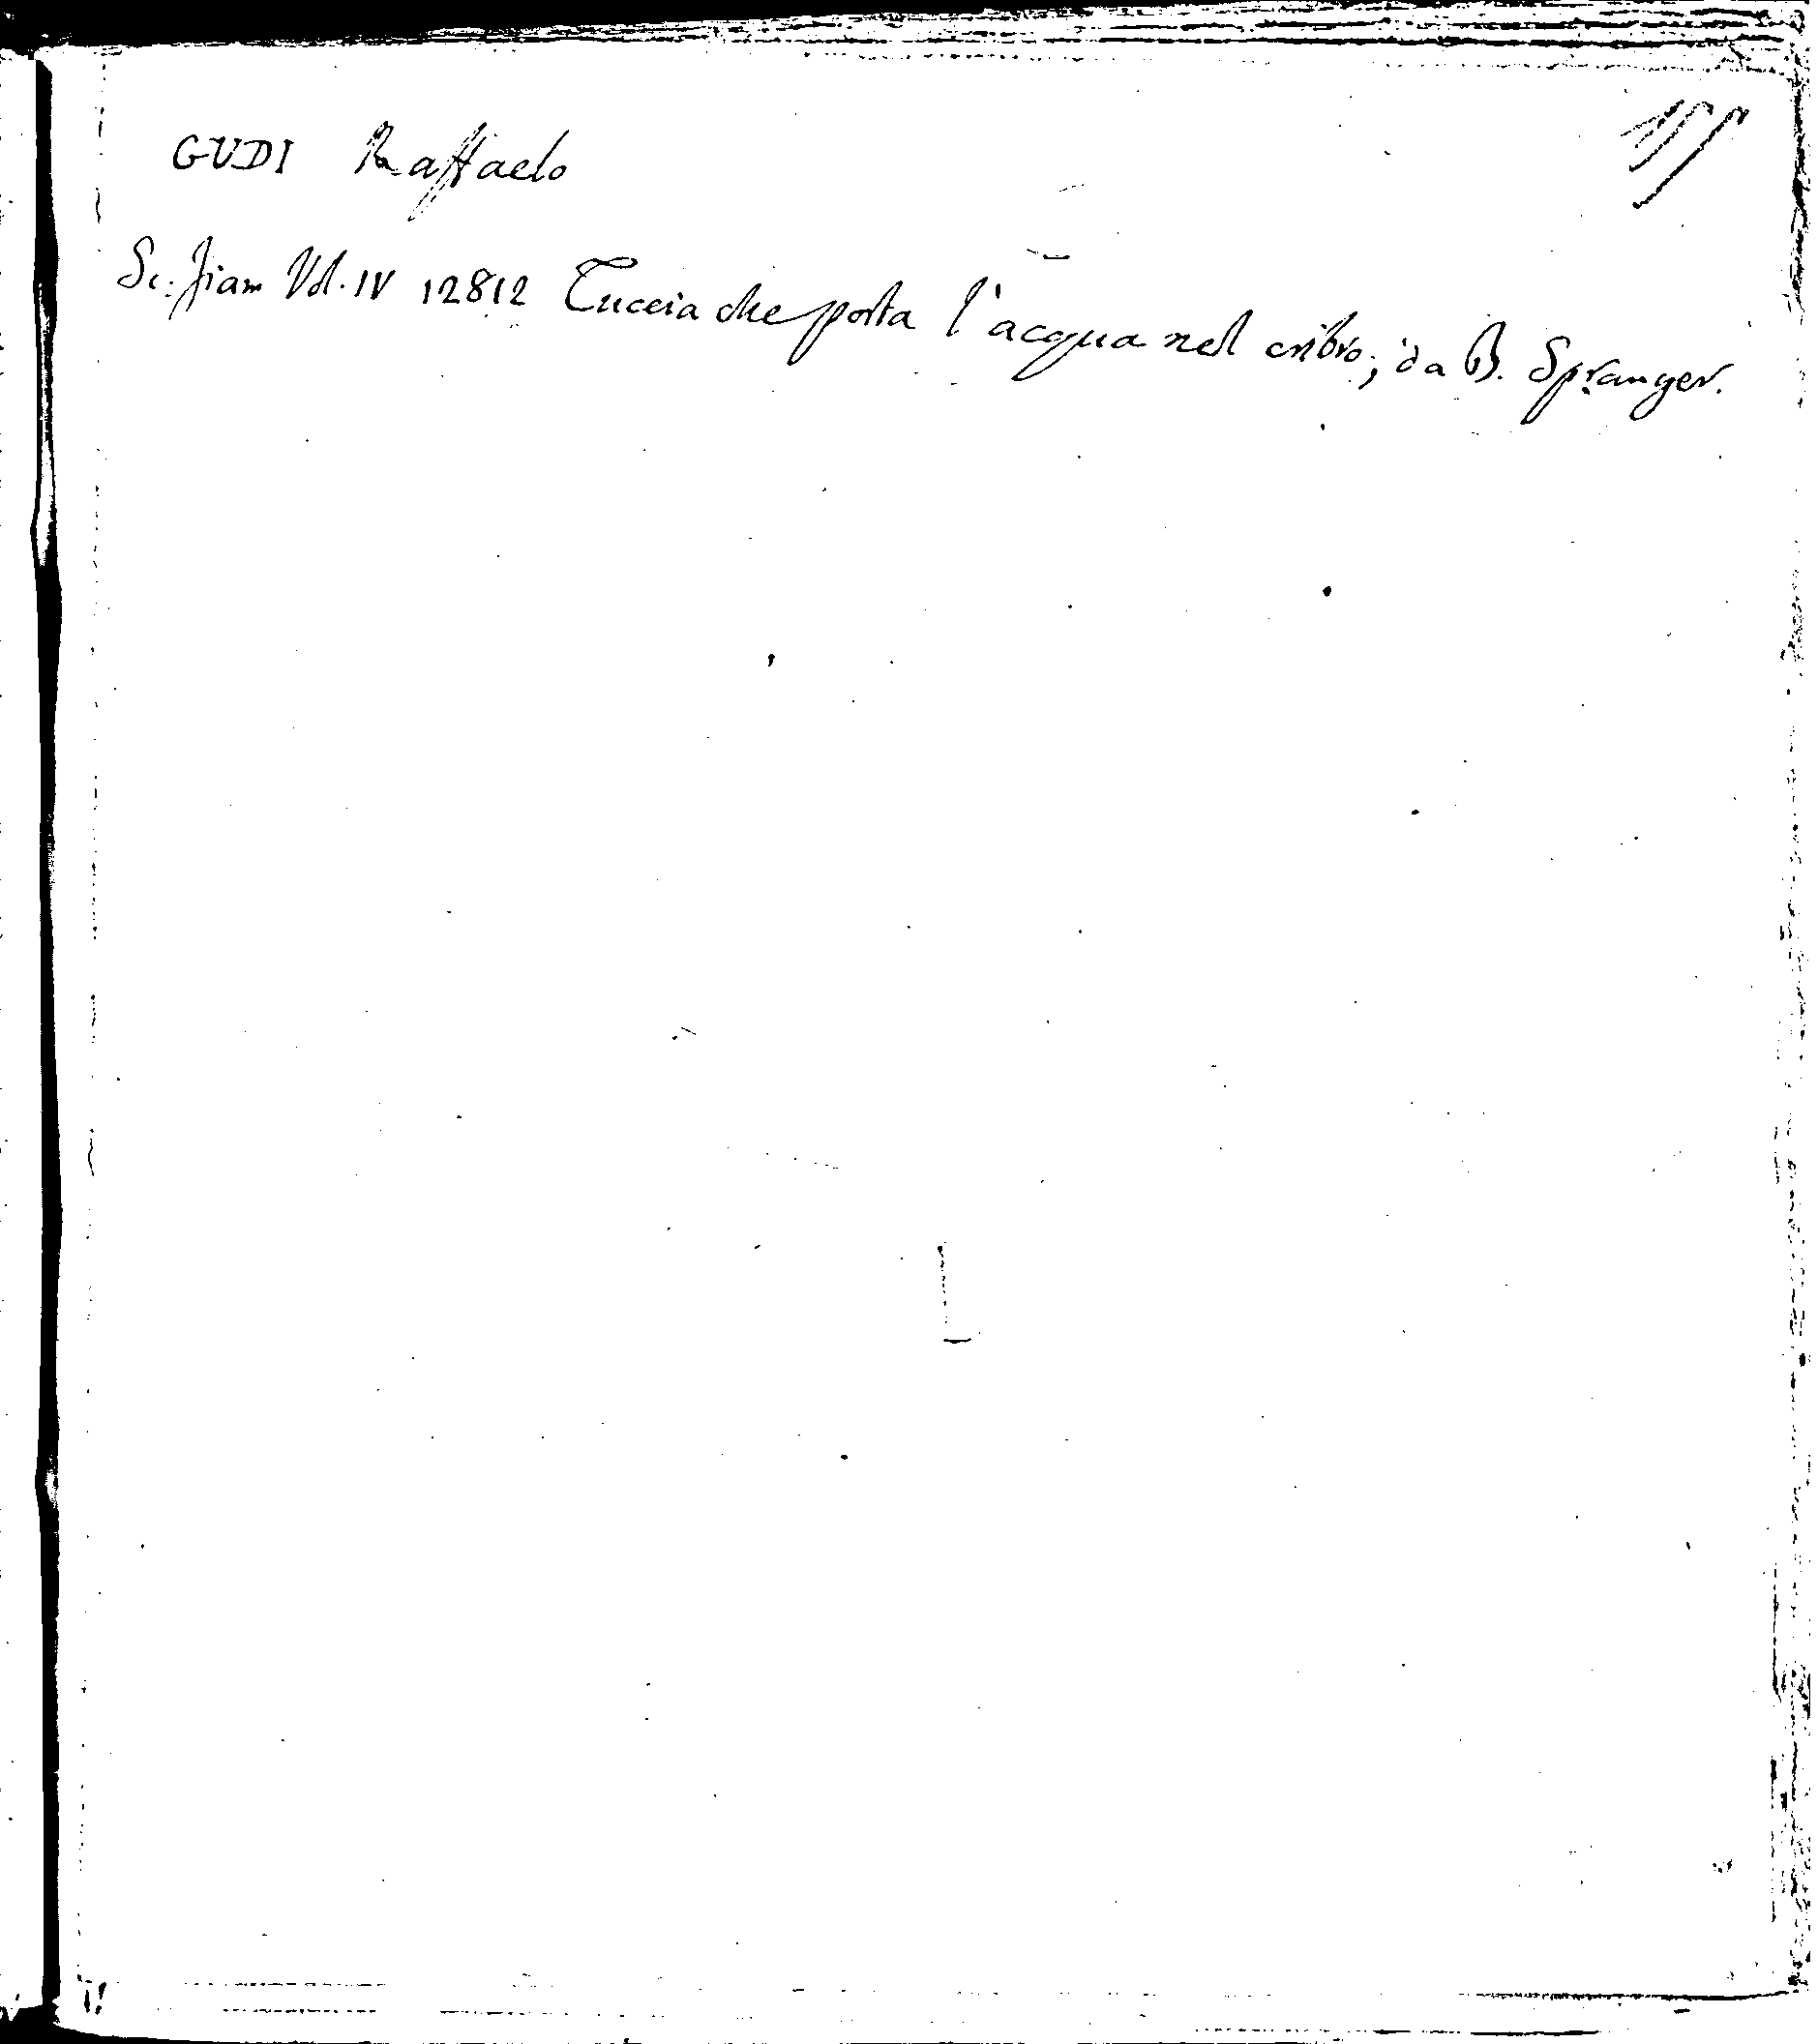 155
GUDI Raffaelo
Sc. fiam Vol. IV 12812 Tuccia che porta l'acqua nel cribro; da B. Spranger.